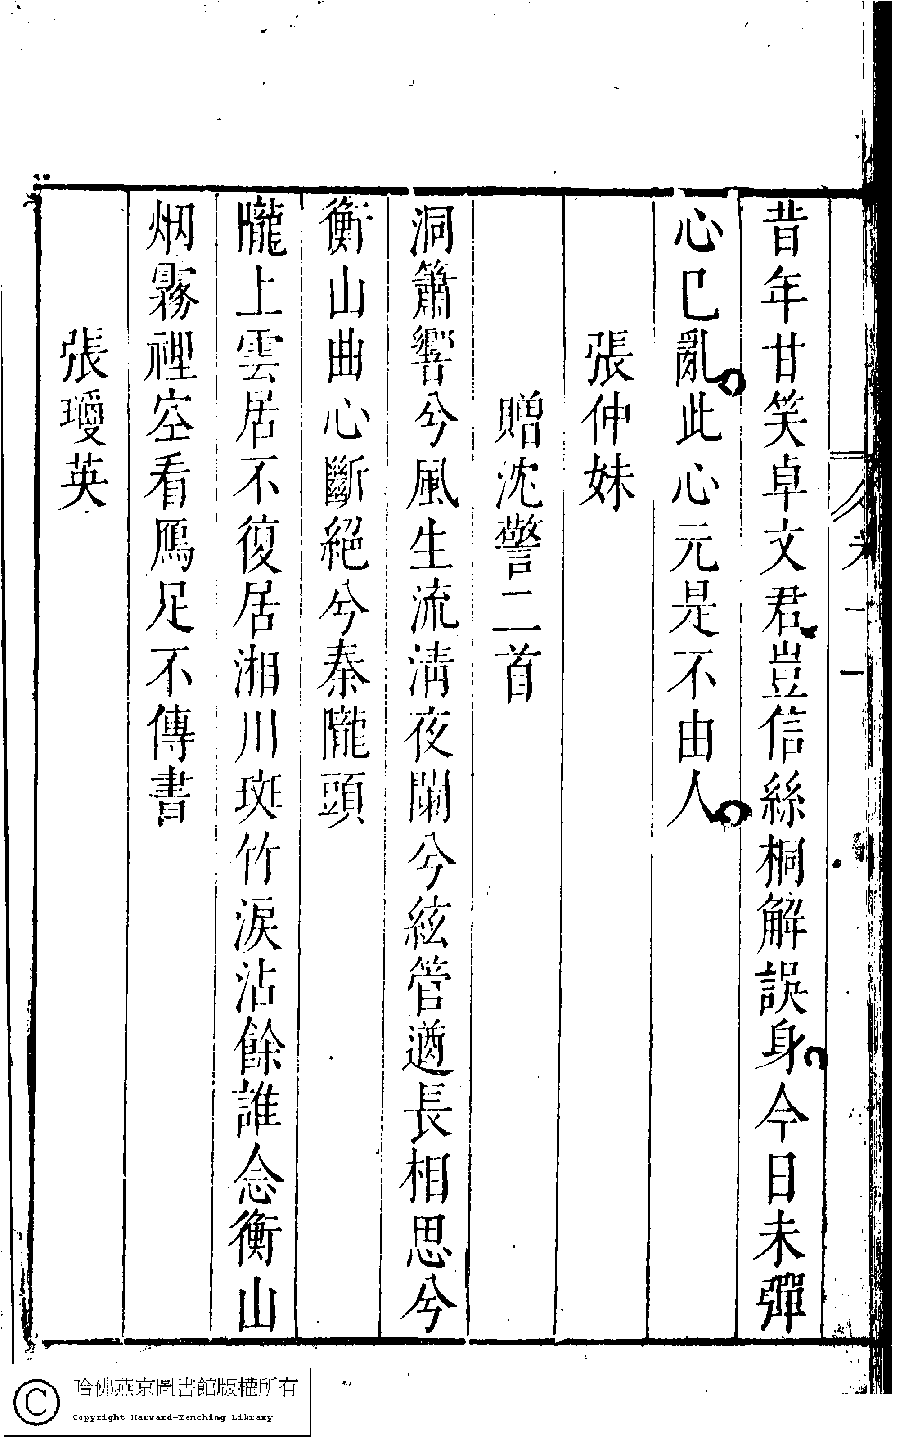 昔年甘笑卓文君豈信絲桐解誤身今日未彈
心已亂此心元是不由人
張仲妹
贈沈警二首
洞簫響兮風生流清夜闌兮絃管遒長相思兮
衡山曲心斷絕兮秦隴頭
隴上雲居不復居湘川斑竹淚沾餘誰念衡山
烟霧裡空看鴈足不傳書
張瓊英
哈佛燕京圖書館版權所有
Copyright Harvard-Yenching Library